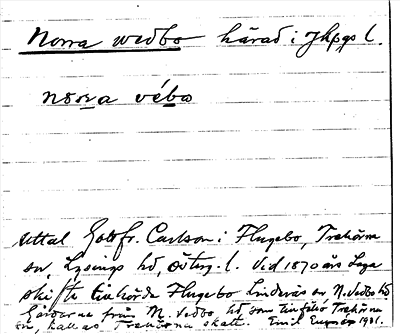 Norra wedbo härad i Jkpgs l.
norra vébo
Uttal Gottfr. Carlson i Flugebo, Trehörna
sn, Lysings hd, Österg. l. Vid 1870 års Laga
skifte tillhörde Flugebo Linderås sn, N. Vedbo hd
Gårdarna från N. Vedbo hd som tillföll Trehörna
sn, kallas Trehörna skate. Emil 1931.